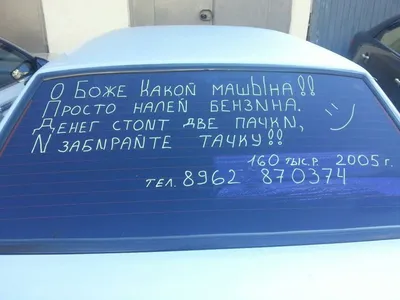 О Боже какой машЫна!!
Просто налей бензина.
Денег стоит две пачки,
И забирайте тачку!!
160 тыс.р. 2005 г.
тел. 8962 870374